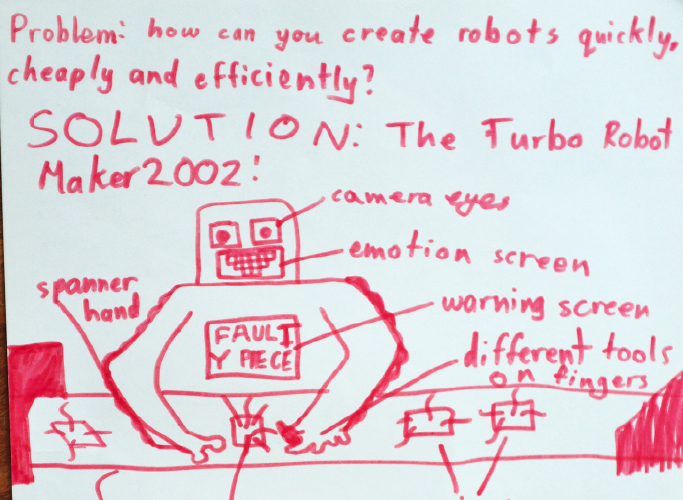 Problem: how can you create robots quickly,
cheaply and efficiently?
SOLUTION: The Turbo Robot
Maker 2002!
camera eyes
emotion screen
spanner
hand
warning screen
FAULT
Y PIECE
different tools
on fingers